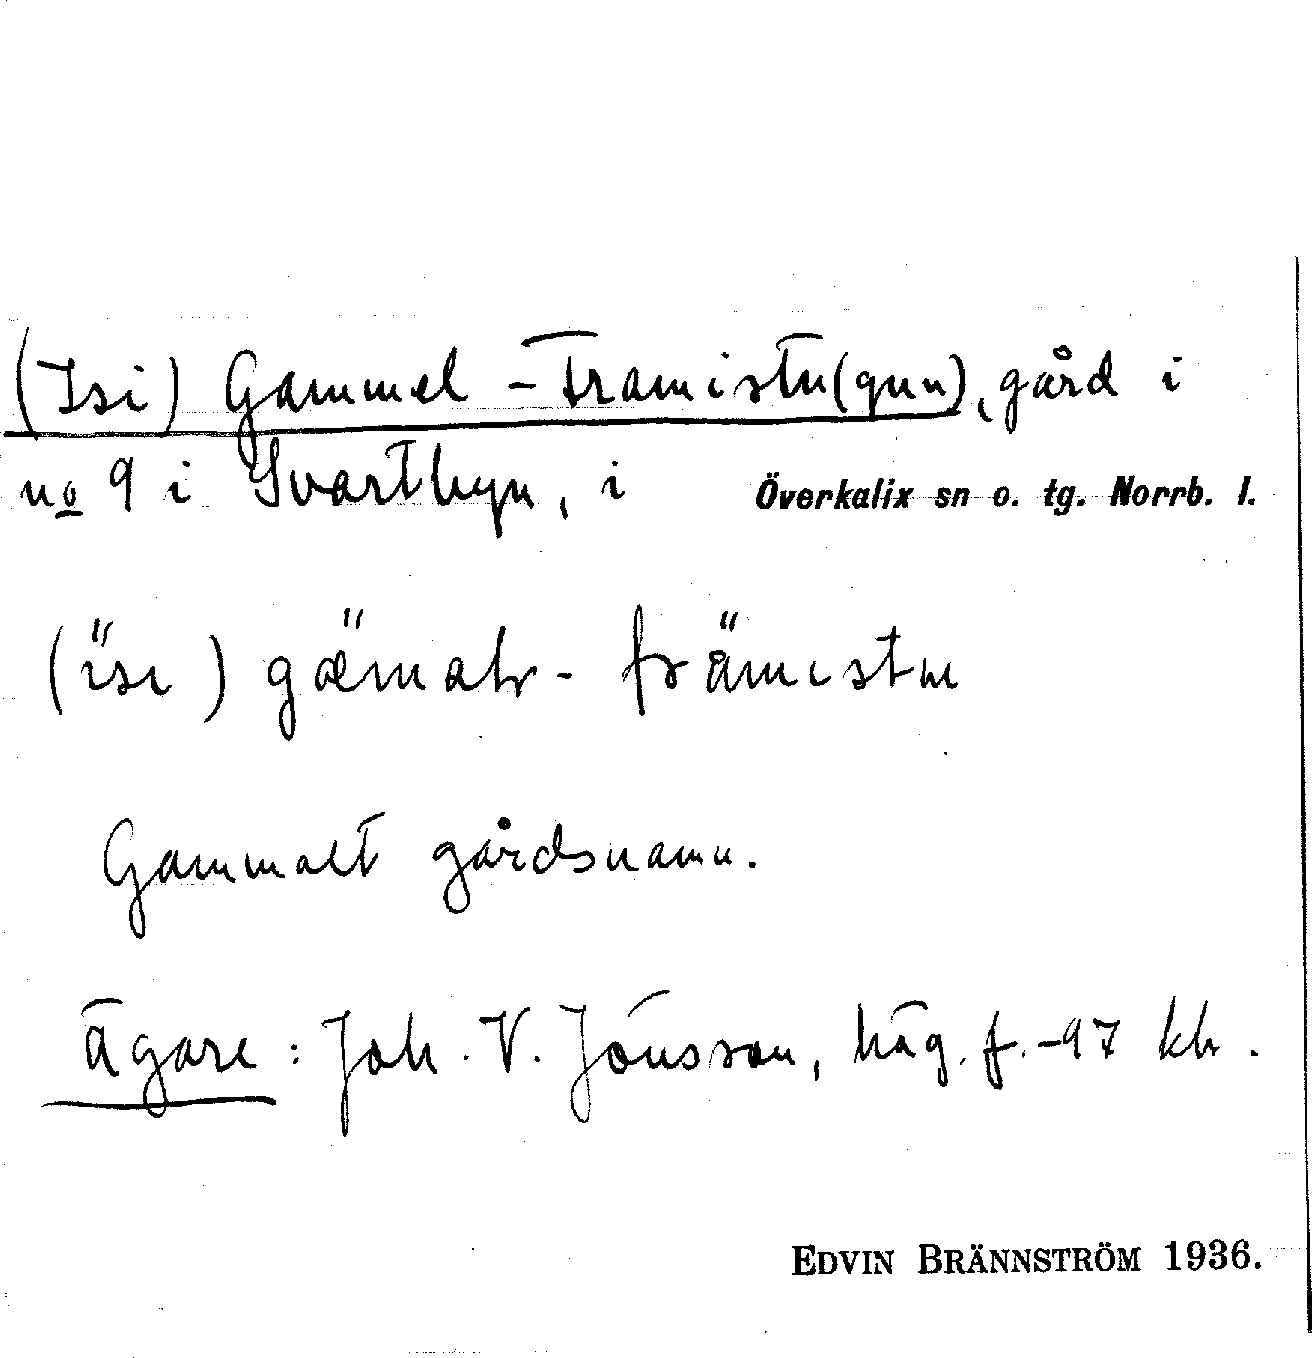 (Isi) Gammel-Framistu(gun), gård i
no 9 i Svartbyn, i Överkalix sn o. tg. Norrb. l.
Gammalt gårdsnamn.
Ägare: Joh. V. Jónsson, häg. f. -97 kh.
EDVIN BRÄNNSTRÖM 1936.